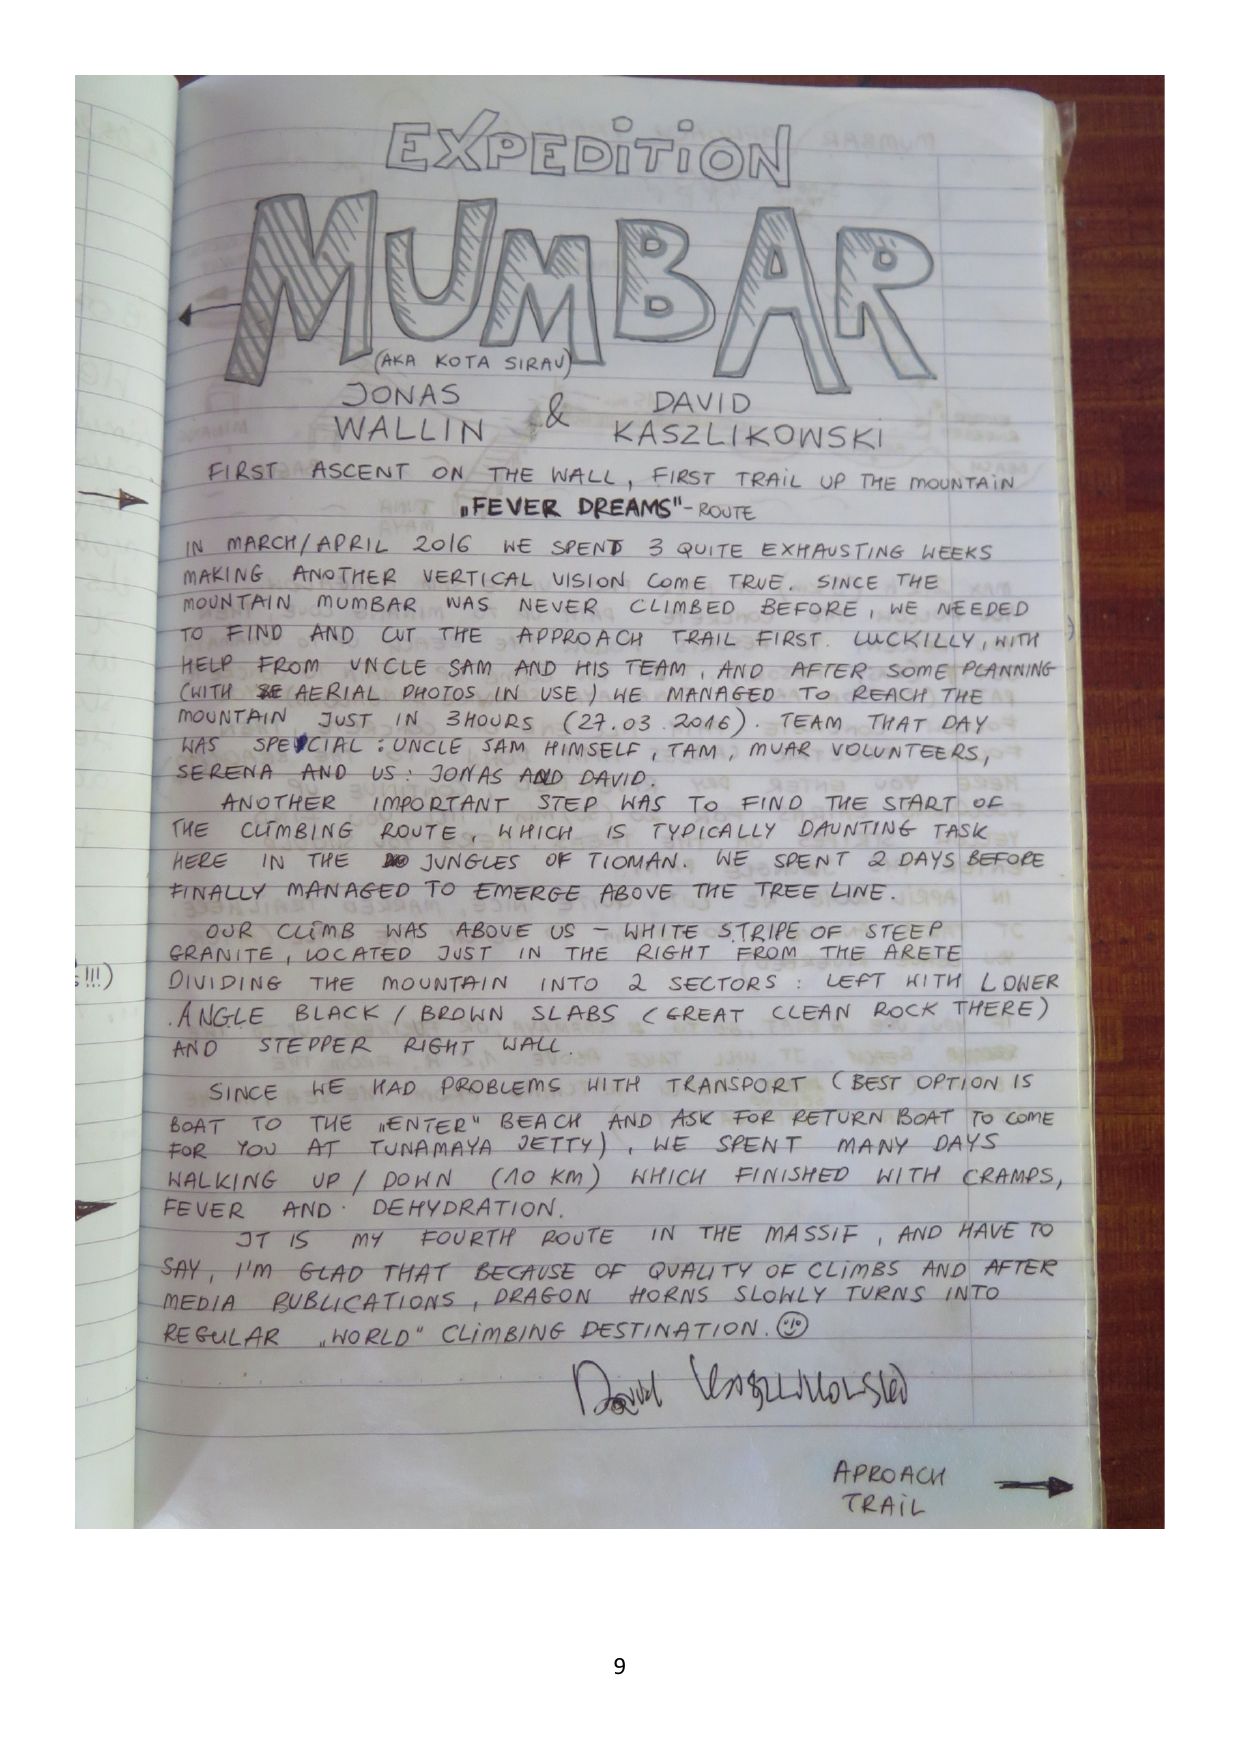 EXPEDITION
MUMBAR
(AKA KOTA SIRAU)
JONAS WALLIN & DAVID KASZLIKOWSKI
FIRST ASCENT ON THE WALL, FIRST TRAIL UP THE MOUNTAIN
„FEVER DREAMS" - ROUTE
IN MARCH/APRIL 2016 WE SPENT 3 QUITE EXHAUSTING WEEKS
MAKING ANOTHER VERTICAL VISION COME TRUE. SINCE THE
MOUNTAIN MUMBAR WAS NEVER CLIMBED BEFORE, WE NEEDED
TO FIND AND CUT THE APPROACH TRAIL FIRST. LUCKILLY, WITH
HELP FROM UNCLE SAM AND HIS TEAM, AND AFTER SOME PLANNING
(WITH AERIAL PHOTOS IN USE) WE MANAGED TO REACH THE
MOUNTAIN JUST IN 3HOURS (27.03.2016). TEAM THAT DAY
WAS SPECIAL: UNCLE SAM HIMSELF, TAM, MUAR VOLUNTEERS,
SERENA AND US: JONAS AND DAVID.
ANOTHER IMPORTANT STEP WAS TO FIND THE START OF
THE CLIMBING ROUTE, WHICH IS TYPICALLY DAUNTING TASK
HERE IN THE JUNGLES OF TIOMAN. WE SPENT 2 DAYS BEFORE
FINALLY MANAGED TO EMERGE ABOVE THE TREE LINE.
OUR CLIMB WAS ABOVE US – WHITE STRIPE OF STEEP
GRANITE, LOCATED JUST IN THE RIGHT FROM THE ARETE
DIVIDING THE MOUNTAIN INTO 2 SECTORS: LEFT WITH LOWER
ANGLE BLACK / BROWN SLABS (GREAT CLEAN ROCK THERE)
AND STEPPER RIGHT WALL.
SINCE WE HAD PROBLEMS WITH TRANSPORT (BEST OPTION IS
BOAT TO THE „ENTER" BEACH AND ASK FOR RETURN BOAT TO COME
FOR YOU AT TUNAMAYA JETTY), WE SPENT MANY DAYS
WALKING UP / DOWN (10 KM) WHICH FINISHED WITH CRAMPS,
FEVER AND DEHYDRATION.
IT IS MY FOURTH ROUTE IN THE MASSIF, AND HAVE TO
SAY, I'M GLAD THAT BECAUSE OF QUALITY OF CLIMBS AND AFTER
MEDIA PUBLICATIONS, DRAGON HORNS SLOWLY TURNS INTO
REGULAR „WORLD" CLIMBING DESTINATION.
David Kaszlikowski
APROACH
TRAIL
!!!)
9